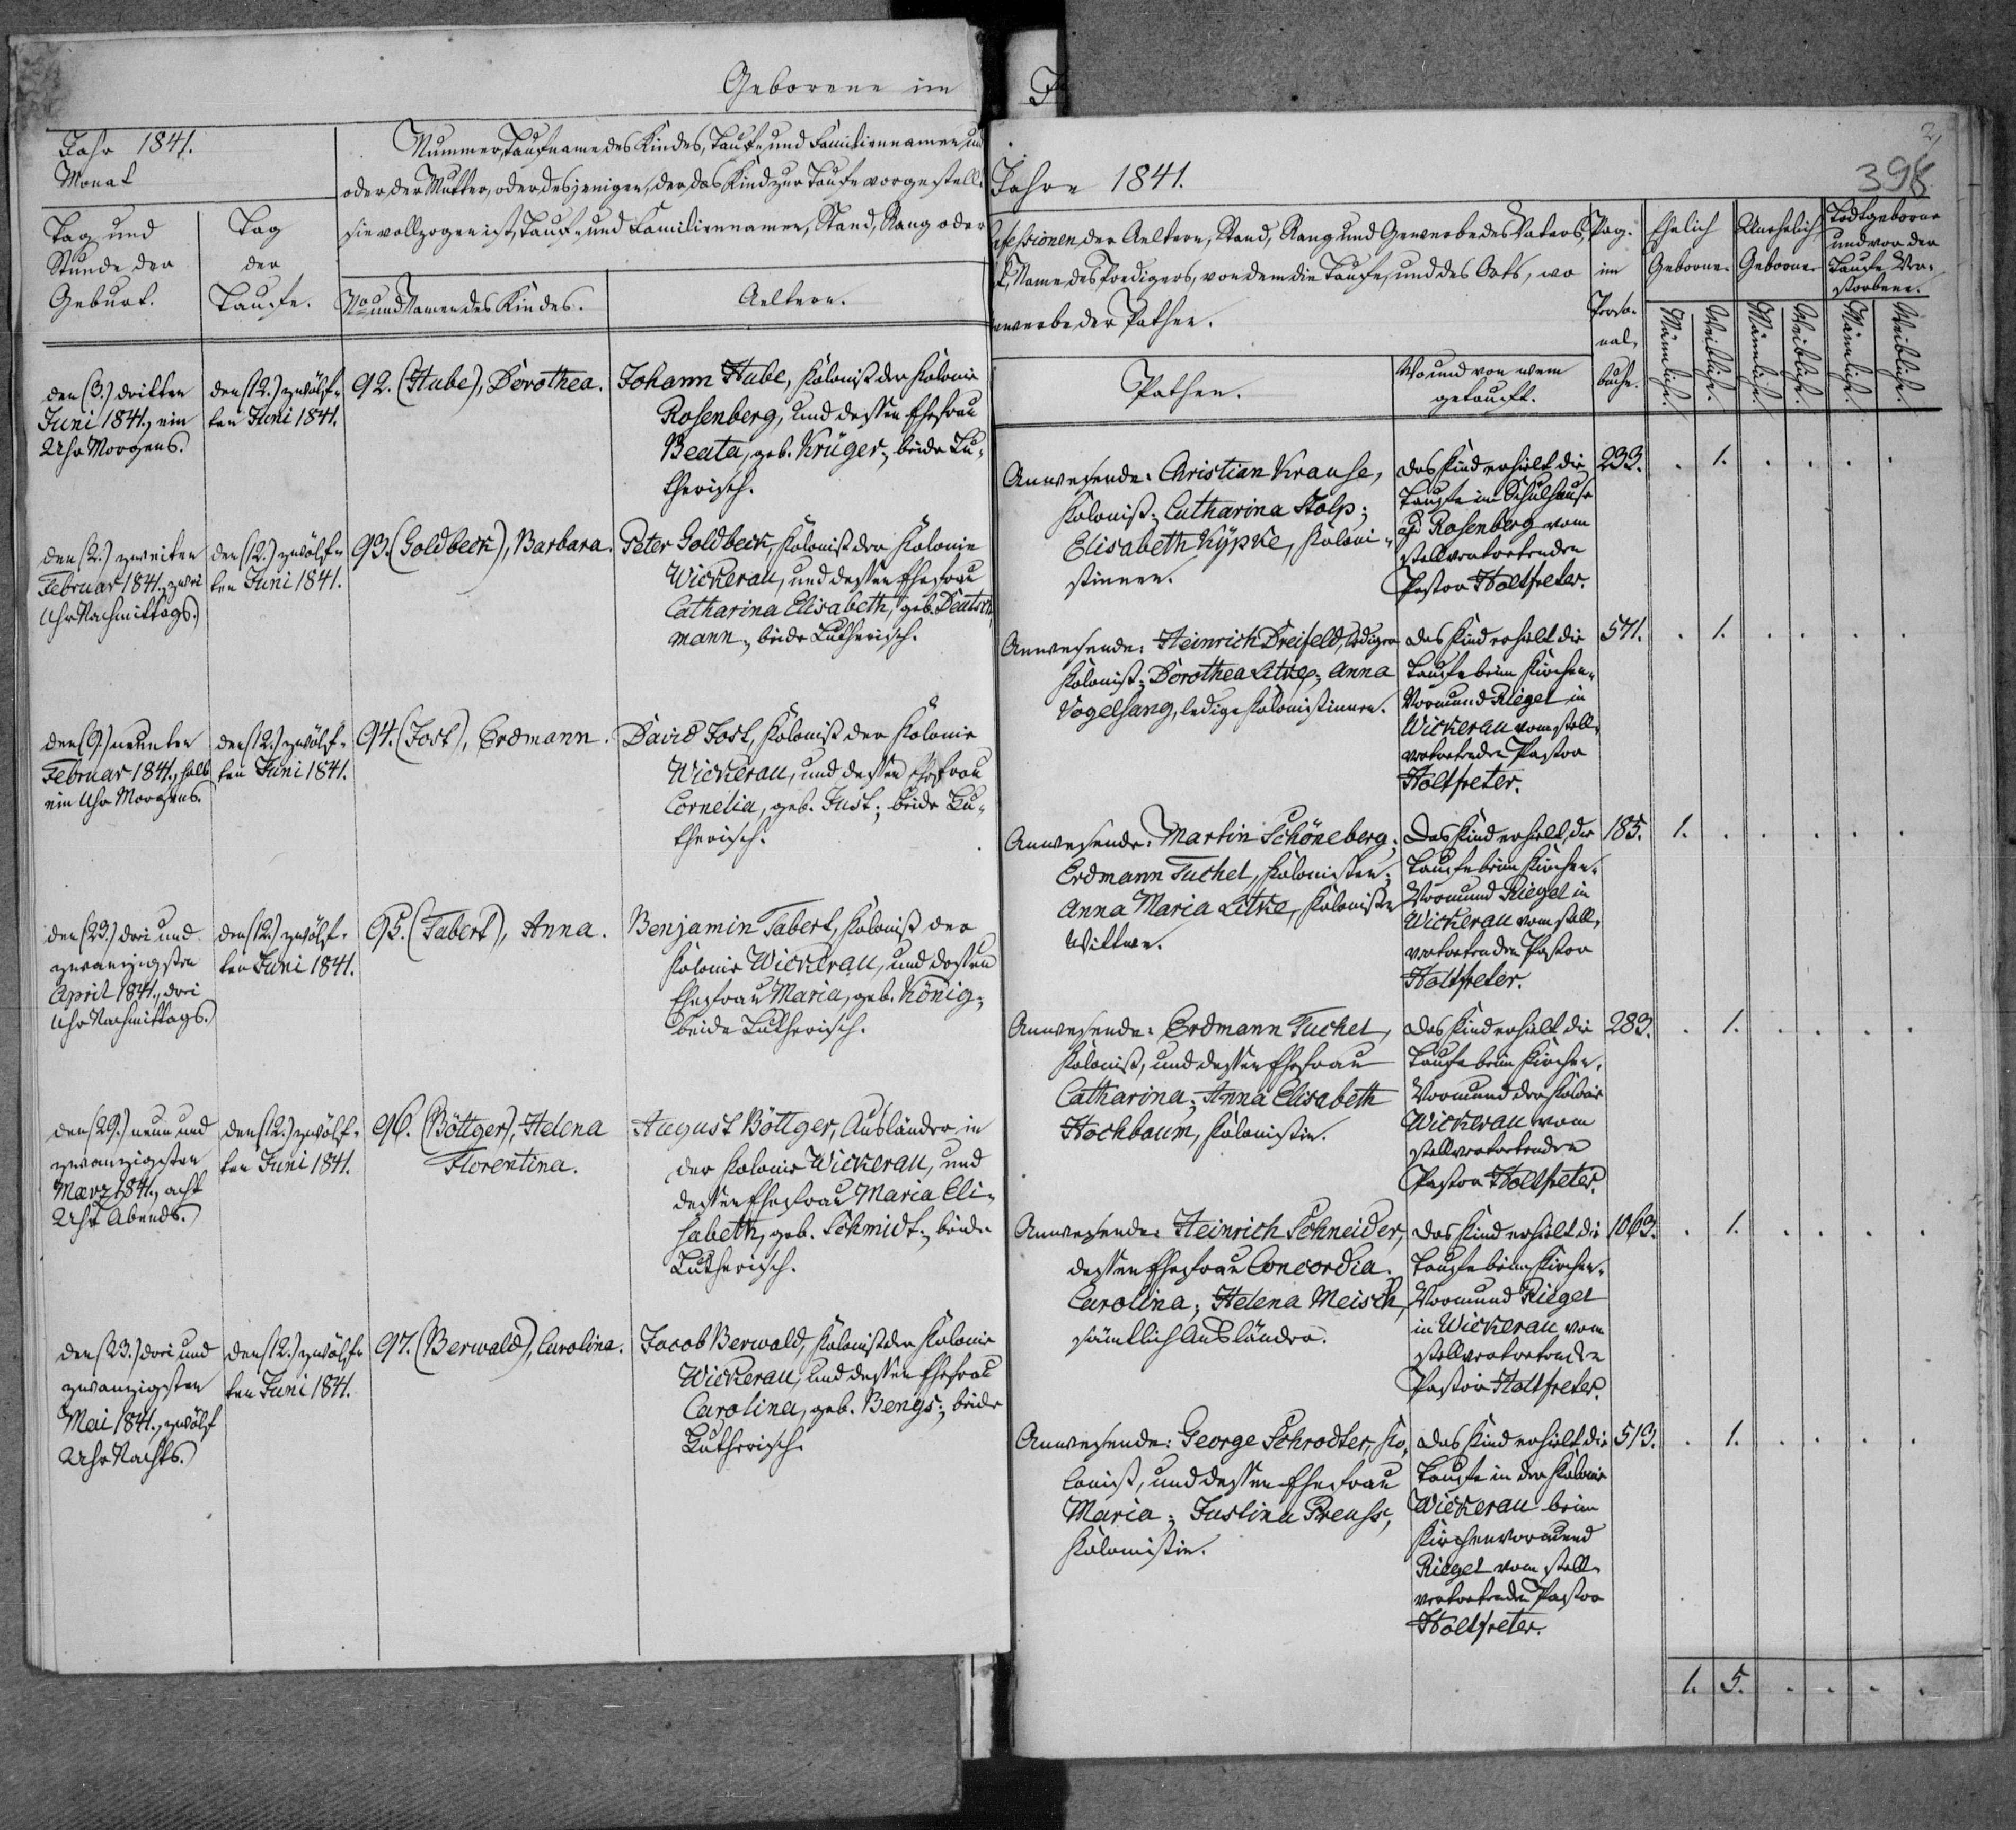 Geborene im
Jahr 1841.
Monat
Nummer, Taufname des Kindes, Tauf- und Familiennamen und
oder der Mutter, oder desjenigen, der das Kind zur Taufe vorgestellt
sie vollzogen ist, Tauf- und Familiennamen, Stand, Rang oder
Tag und
Stunde der
Geburt.
Tag
der
Taufe.
No und Namen des Kindes.
Aeltern.
den (3.) dritten
Juni 1841., ein
Uhr Morgens.
den (12.) zwölf-
ten Juni 1841.
92. (Hube), Dorothea.
Johann Hube, Kolonist der Kolonie
Rosenberg, und dessen Ehefrau
Beata, geb. Krüger; beide Lu-
therisch.
den (2.) zweiten
Februar 1841., zwei
Uhr Nachmittags.
den (12.) zwölf-
ten Juni 1841.
93. (Goldbeck), Barbara.
Peter Goldbeck, Kolonist der Kolonie
Wickerau, und dessen Ehefrau
Catharina Elisabeth, geb. Deutsch-
mann; beide Lutherisch.
den (9.) neunten
Februar 1841., halb
ein Uhr Morgens.
den (12.) zwölf-
ten Juni 1841.
94. (Jost), Erdmann.
David Jost, Kolonist der Kolonie
Wickerau, und dessen Ehefrau
Cornelia, geb. Just; beide Lu-
therisch.
den (23.) drei und
zwanzigsten
April 1841., drei
Uhr Nachmittags.
den (12.) zwölf-
ten Juni 1841.
95. (Tabert), Anna.
Benjamin Tabert, Kolonist der
Kolonie Wickerau, und dessen
Ehefrau Maria, geb. König;
beide Lutherisch.
den (29.) neun und
zwanzigsten
Maerz 1841., acht
Uhr Abends.
den (12.) zwölf-
ten Juni 1841.
96. (Böttger), Helena
Florentina.
August Böttger, Ausländer in
der Kolonie Wickerau, und
dessen Ehefrau Maria Eli-
sabeth, geb. Schmidt; beide
Lutherisch.
den (23.) drei und
zwanzigsten
Mai 1841., zwölf
Uhr Nachts.
den (12.) zwölf-
ten Juni 1841.
97. (Berwald), Carolina.
Jacob Berwald, Kolonist der Kolonie
Wickerau, und dessen Ehefrau
Carolina, geb. Bengs; beide
Lutherisch.
2,
398
Jahre 1841.
nfessionen der Aeltern, Stand, Rang und Gewerbe des Vaters,
t, Name des Predigers, von dem die Taufe, und des Orts, wo
ewerbe der Pathen.
Pag.
im
Perso-
nal-
buche.
Ehelich
Geborne.
Unehelich
Geborne.
Todtgeborne
und vor der
Taufe Ver-
storbene.
Männliche.
Weibliche.
Männliche.
Weibliche.
Männliche.
Weibliche.
Pathen.
Wo und von wem
getauft.
Anwesende: Christian Krause,
Kolonist; Catharina Stolp;
Elisabeth Kypke, Koloni-
stinnen.
Das Kind erhielt die
Taufe im Schulhause
zu Rosenberg vom
stellvertretenden
Pastor Holtfreter.
233. . 1. . . . .
Anwesende: Heinrich Dreifeld, lediger
Kolonist; Dorothea Litke; Anna
Vogelsang, ledige Kolonistinnen.
Das Kind erhielt die
Taufe beim Kirchen-
Vormund Riegel in
Wickerau vom stell-
vertretenden Pastor
Holtfreter.
571. . 1. . . . .
Anwesende: Martin Schöneberg;
Erdmann Tuchel, Kolonisten;
Anna Maria Litke, Kolonisten
Wittwe.
Das Kind erhielt die
Taufe beim Kirchen-
Vormund Riegel in
Wickerau vom stell-
vertretenden Pastor
Holtfreter.
185. 1. . . . . .
Anwesende: Erdmann Tuchel,
Kolonist, und dessen Ehefrau
Catharina; Anna Elisabeth
Hochbaum, Kolonistin.
Das Kind erhielt die
Taufe beim Kirchen-
Vormund der Kolonie
Wickerau vom
stellvertretenden
Pastor Holtfreter.
283. . 1. . . . .
Anwesende: Heinrich Schneider,
dessen Ehefrau Concordia
Carolina; Helena Meisch,
sämtlich Ausländer.
Das Kind erhielt die
Taufe beim Kirchen-
Vormund Riegel
in Wickerau vom
stellvertretenden
Pastor Holtfreter.
1063. . 1. . . . .
Anwesende: George Schrodter, Ko-
lonist, und dessen Ehefrau
Maria; Justina Preuss,
Kolonistin.
Das Kind erhielt die
Taufe in der Kolonie
Wickerau beim
Kirchenvormund
Riegel vom stell-
vertretenden Pastor
Holtfreter.
513. . 1. . . . .
1. 5. . . . .